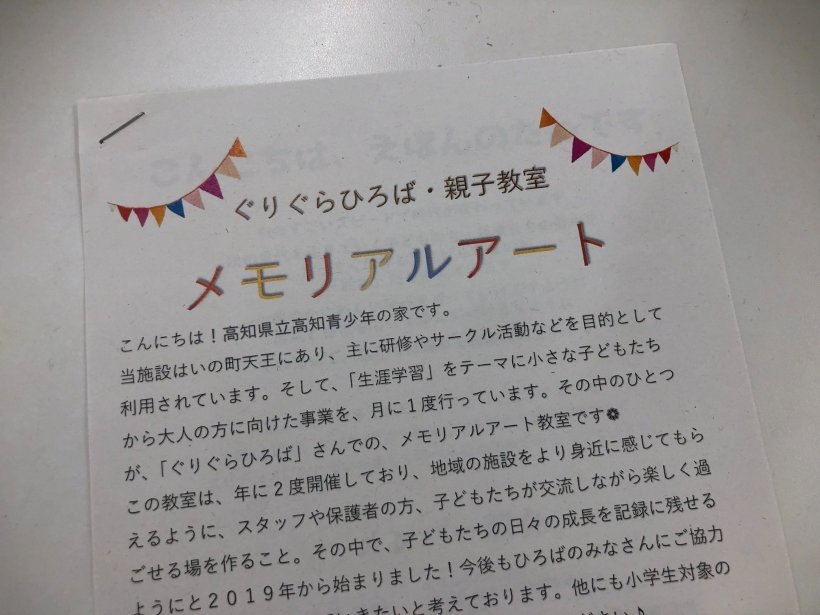 ぐりぐらひろば・親子教室
メモリアルアート
こんにちは！高知県立高知青少年の家です。
当施設はいの町天王にあり、主に研修やサークル活動などを目的として
利用されています。そして、「生涯学習」をテーマに小さな子どもたち
から大人の方に向けた事業を、月に１度行っています。その中のひとつ
が、「ぐりぐらひろば」さんでの、メモリアルアート教室です❁
この教室は、年に２度開催しており、地域の施設をより身近に感じてもら
えるように、スタッフや保護者の方、子どもたちが交流しながら楽しく過
ごせる場を作ること。その中で、子どもたちの日々の成長を記録に残せる
ようにと２０１９年から始まりました！今後もひろばのみなさんにご協力
いきたいと考えております。他にも小学生対象の